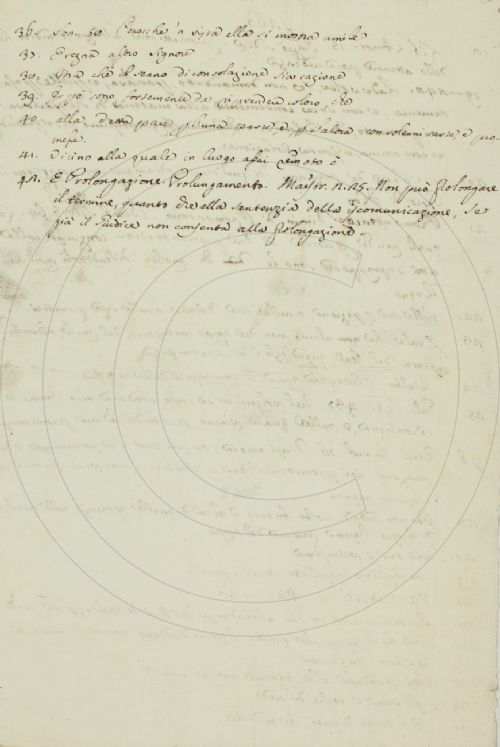 36. Son. 59. Perocchè 'n vista ella si mostra umile
37. E regna altro Signore
38. Una che il seano di consolazione sia cagione
39. E però sono forsemente da riprendere coloro, che
40. alla dette pace p l'una parte, e p l'altra con solenni carte, e pro
messe.
41. Vicino alla quale in luogo assai remoto è
42. E Prolongazione Prolungamento. Maestr. 2. 25. Non può prolongare
il termine, quanto die alla sentenzia della iscomunicazione, se
già il Giudice non consenta alla prolongazione.